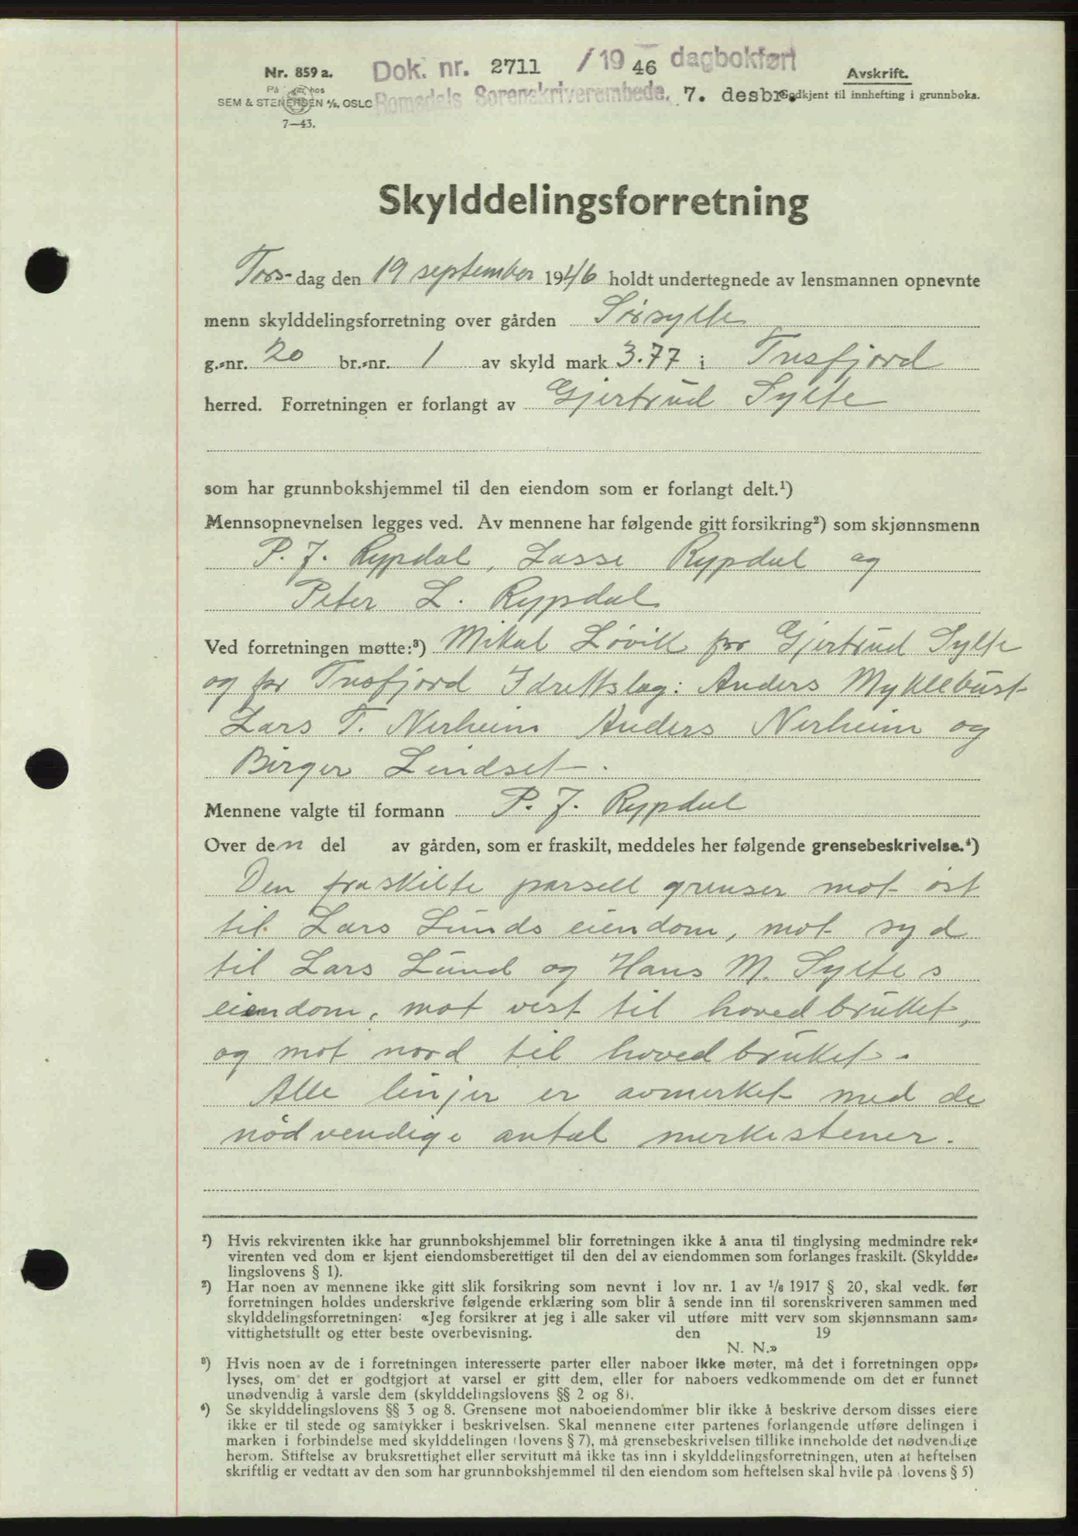 Nr. 859 a.
På hos
SEM & STENERSEN A/S, OSLO
7—43.
Dok. nr. 2711 /19 46 dagbokført
Romsdals Sorenskriverembede. 7. desbr.
Avskrift.
Godkjent til innhefting i grunnboka.
Skylddelingsforretning
Tors-dag den 19 september 1946 holdt undertegnede av lensmannen opnevnte
menn skylddelingsforretning over gården Sørsylte
g.-nr. 20 br.-nr. 1 av skyld mark 3.77 i Tresfjord
herred. Forretningen er forlangt av Gjertrud Sylte
som har grunnbokshjemmel til den eiendom som er forlangt delt.¹)
Mennsopnevnelsen legges ved. Av mennene har følgende gitt forsikring²) som skjønnsmenn
P. J. Rypdal, Lasse Rypdal og
Peter L. Rypdal
Ved forretningen møtte:³) Mikal Løvik for Gjertrud Sylte
og for Tresfjord Idrettslag: Anders Myklebust
Lars T. Nerheim Anders Nerheim og
Birger Lindset.
Mennene valgte til formann P. J. Rypdal
Over den del av gården, som er fraskilt, meddeles her følgende grensebeskrivelse.⁴)
Den fraskilte parsell grenser mot øst
til Lars Lunds eiendom, mot syd
til Lars Lund og Hans M. Syltes
eiendom, mot vest til hovedbruket,
og mot nord til hovedbruket.
Alle linjer er avmerket med de
nødvendige antal merkestener.
¹) Hvis rekvirenten ikke har grunnbokshjemmel blir forretningen ikke å anta til tinglysing medmindre rek-
virenten ved dom er kjent eiendomsberettiget til den del av eiendommen som forlanges fraskilt. (Skyldde-
lingslovens § 1).
²) Har noen av mennene ikke gitt slik forsikring som nevnt i lov nr. 1 av 1/6 1917 § 20, skal vedk. før
forretningen holdes underskrive følgende erklæring som blir å sende inn til sorenskriveren sammen med
skylddelingsforretningen: «Jeg forsikrer at jeg i alle saker vil utføre mitt verv som skjønnsmann sam-
vittighetsfullt og etter beste overbevisning. den 19
N. N.»
³) Hvis noen av de i forretningen interesserte parter eller naboer ikke møter, må det i forretningen opp-
lyses, om det er godtgjort at varsel er gitt dem, eller for naboers vedkommende om det er funnet
unødvendig å varsle dem (skylddelingslovens §§ 2 og 8).
⁴) Se skylddelingslovens §§ 3 og 8. Grensene mot naboeiendommer blir ikke å beskrive dersom disses eiere
ikke er til stede og samtykker i beskrivelsen. Skal mennene etter partenes forlangende utføre delingen i
marken i forbindelse med skylddelingen (lovens § 7), må grensebeskrivelsen tillike inneholde det nødvendige
herom. Stiftelse av bruksrettighet eller servitutt må ikke tas inn i skylddelingsforretningen, uten at heftelsen
skriftlig er vedtatt av den som har grunnbokshjemmel til den eiendom som heftelsen skal hvile på (lovens § 5)